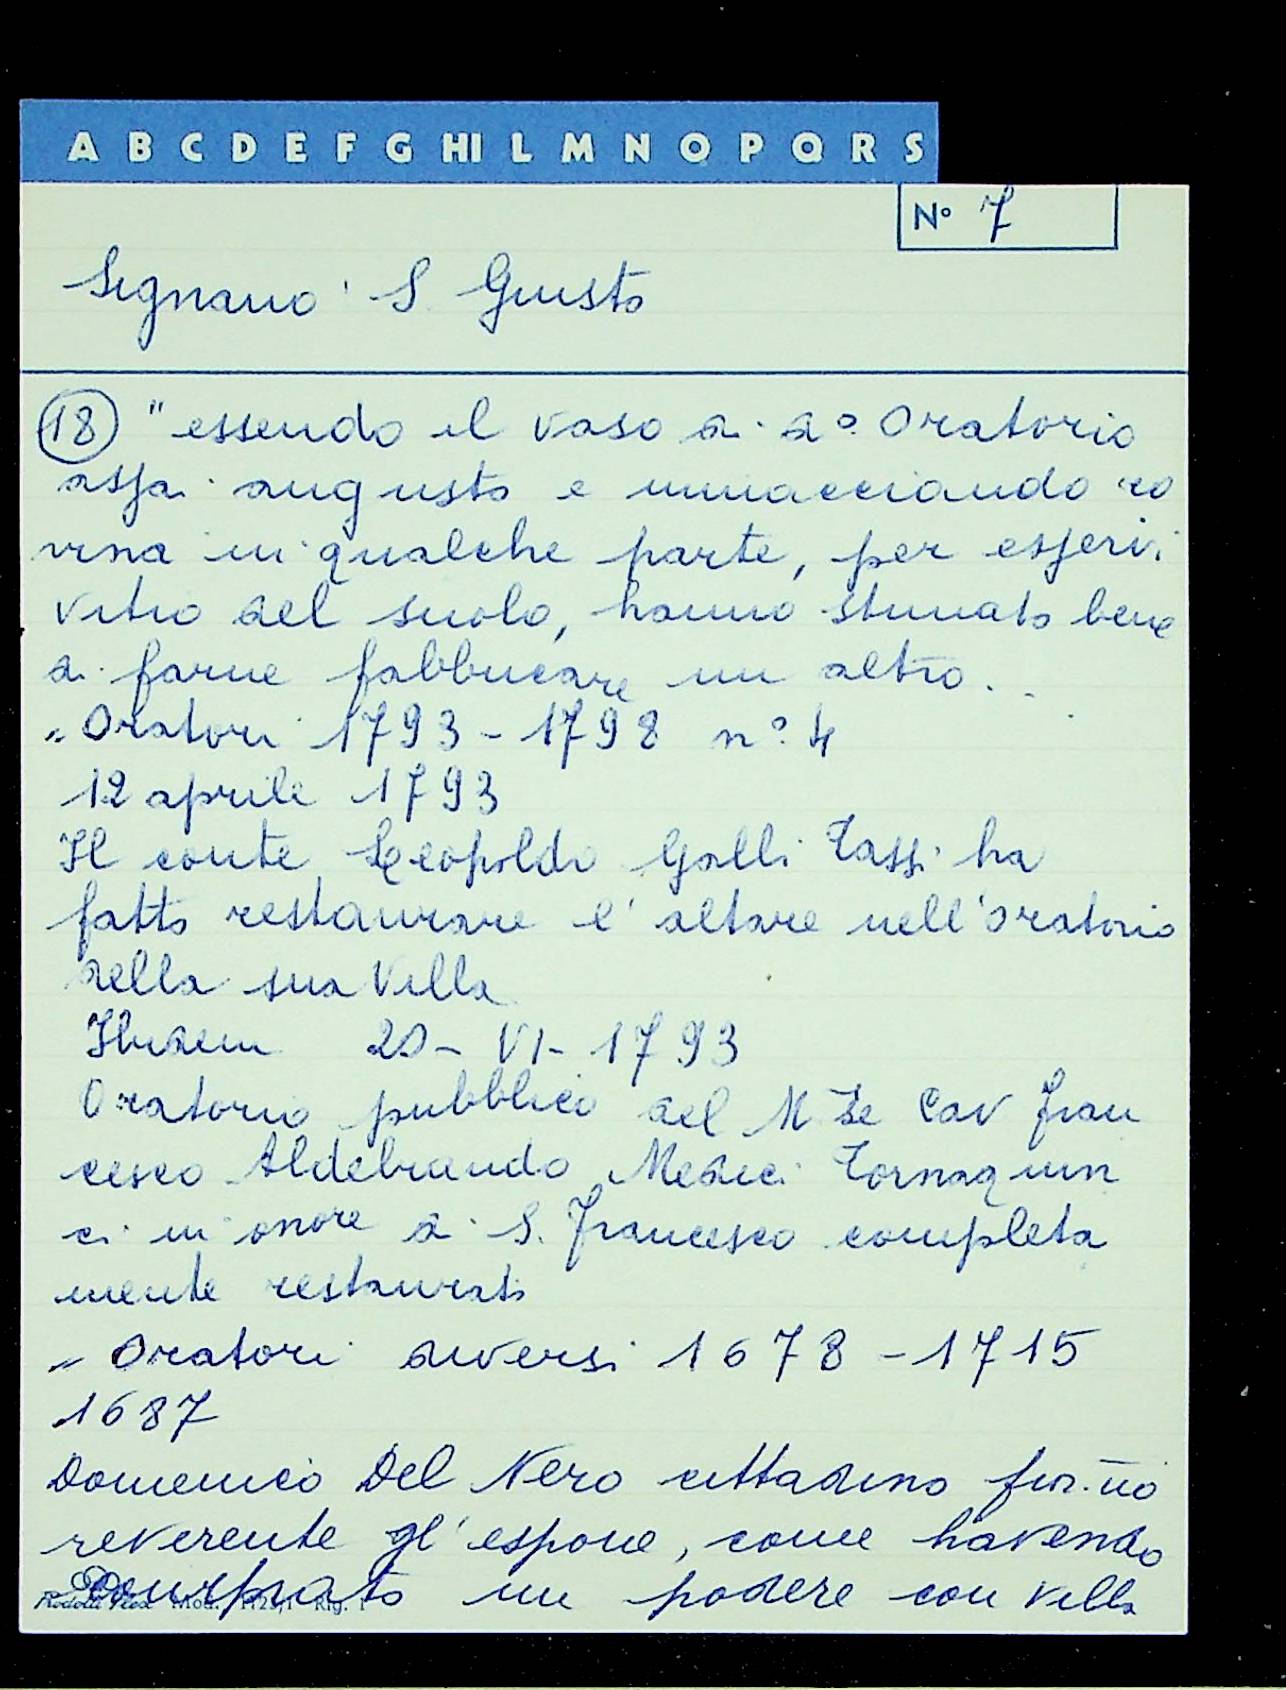 A B C D E F G HI L M N O P Q R S
N° 7
Signano S. Giusto
18 "essendo il vaso di d° Oratorio
assai angusto e minacciando ro
vina in qualche parte, per esservi
vitio del suolo, hanno stimato bene
di farne fabbricare un altro...
"Oratori 1793-1798 n° 4
12 aprile 1793
Il conte Leopoldo Galli Tassi ha
fatto restaurare l'altare nell'oratorio
della sua Villa
Ibidem 20-VI-1793
Oratorio pubblico del M.se Cav Fran
cesco Aldebrando Medici Tornaquin
ci in onore di S. Francesco completa
mente restaurato
"Oratori diversi 1678-1715
1687
Domenico Del Nero cittadino fior.no
reverente gl'espone, come havendo
Comprato un podere con villa
Mod. Rig. 1